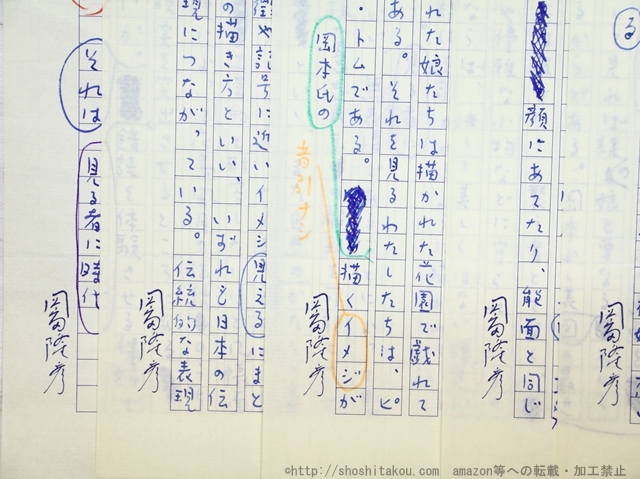 る
顔にあてたり、能面と同じ
岡隆彦
岡隆彦
れた娘たちは描かれた花園で戯れて
ある。それを見るわたしたちは、ピ
・トムである。
岡本氏の
描くイメジが
岡隆彦
に近いイメジ見えるにまと
の描き方といい、いずれも日本の伝
現につながっている。伝統的な表現
岡隆彦
それは見る者に時代
岡隆彦
©http://shoshitakou.com amazon等への転載・加工禁止